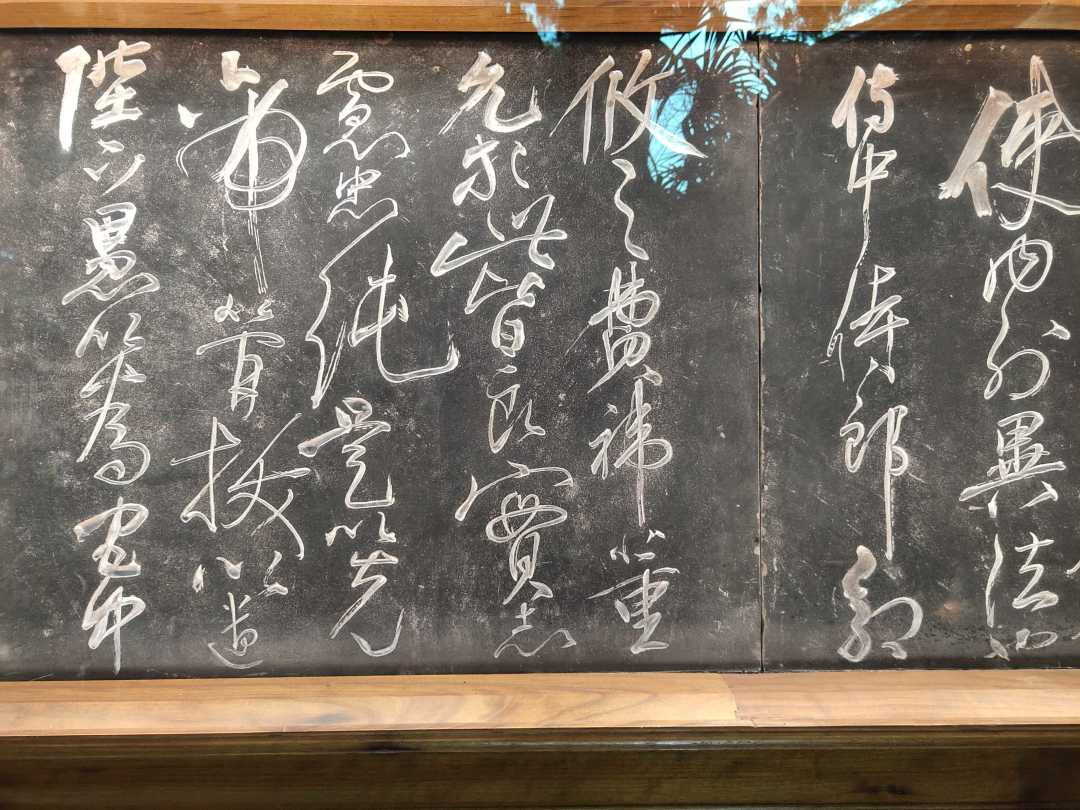 使内外異法也
侍中侍郎郭
攸之費禕董
允等此皆良實志
慮忠純是以先
帝簡拔以遺
陛下愚以為宮中